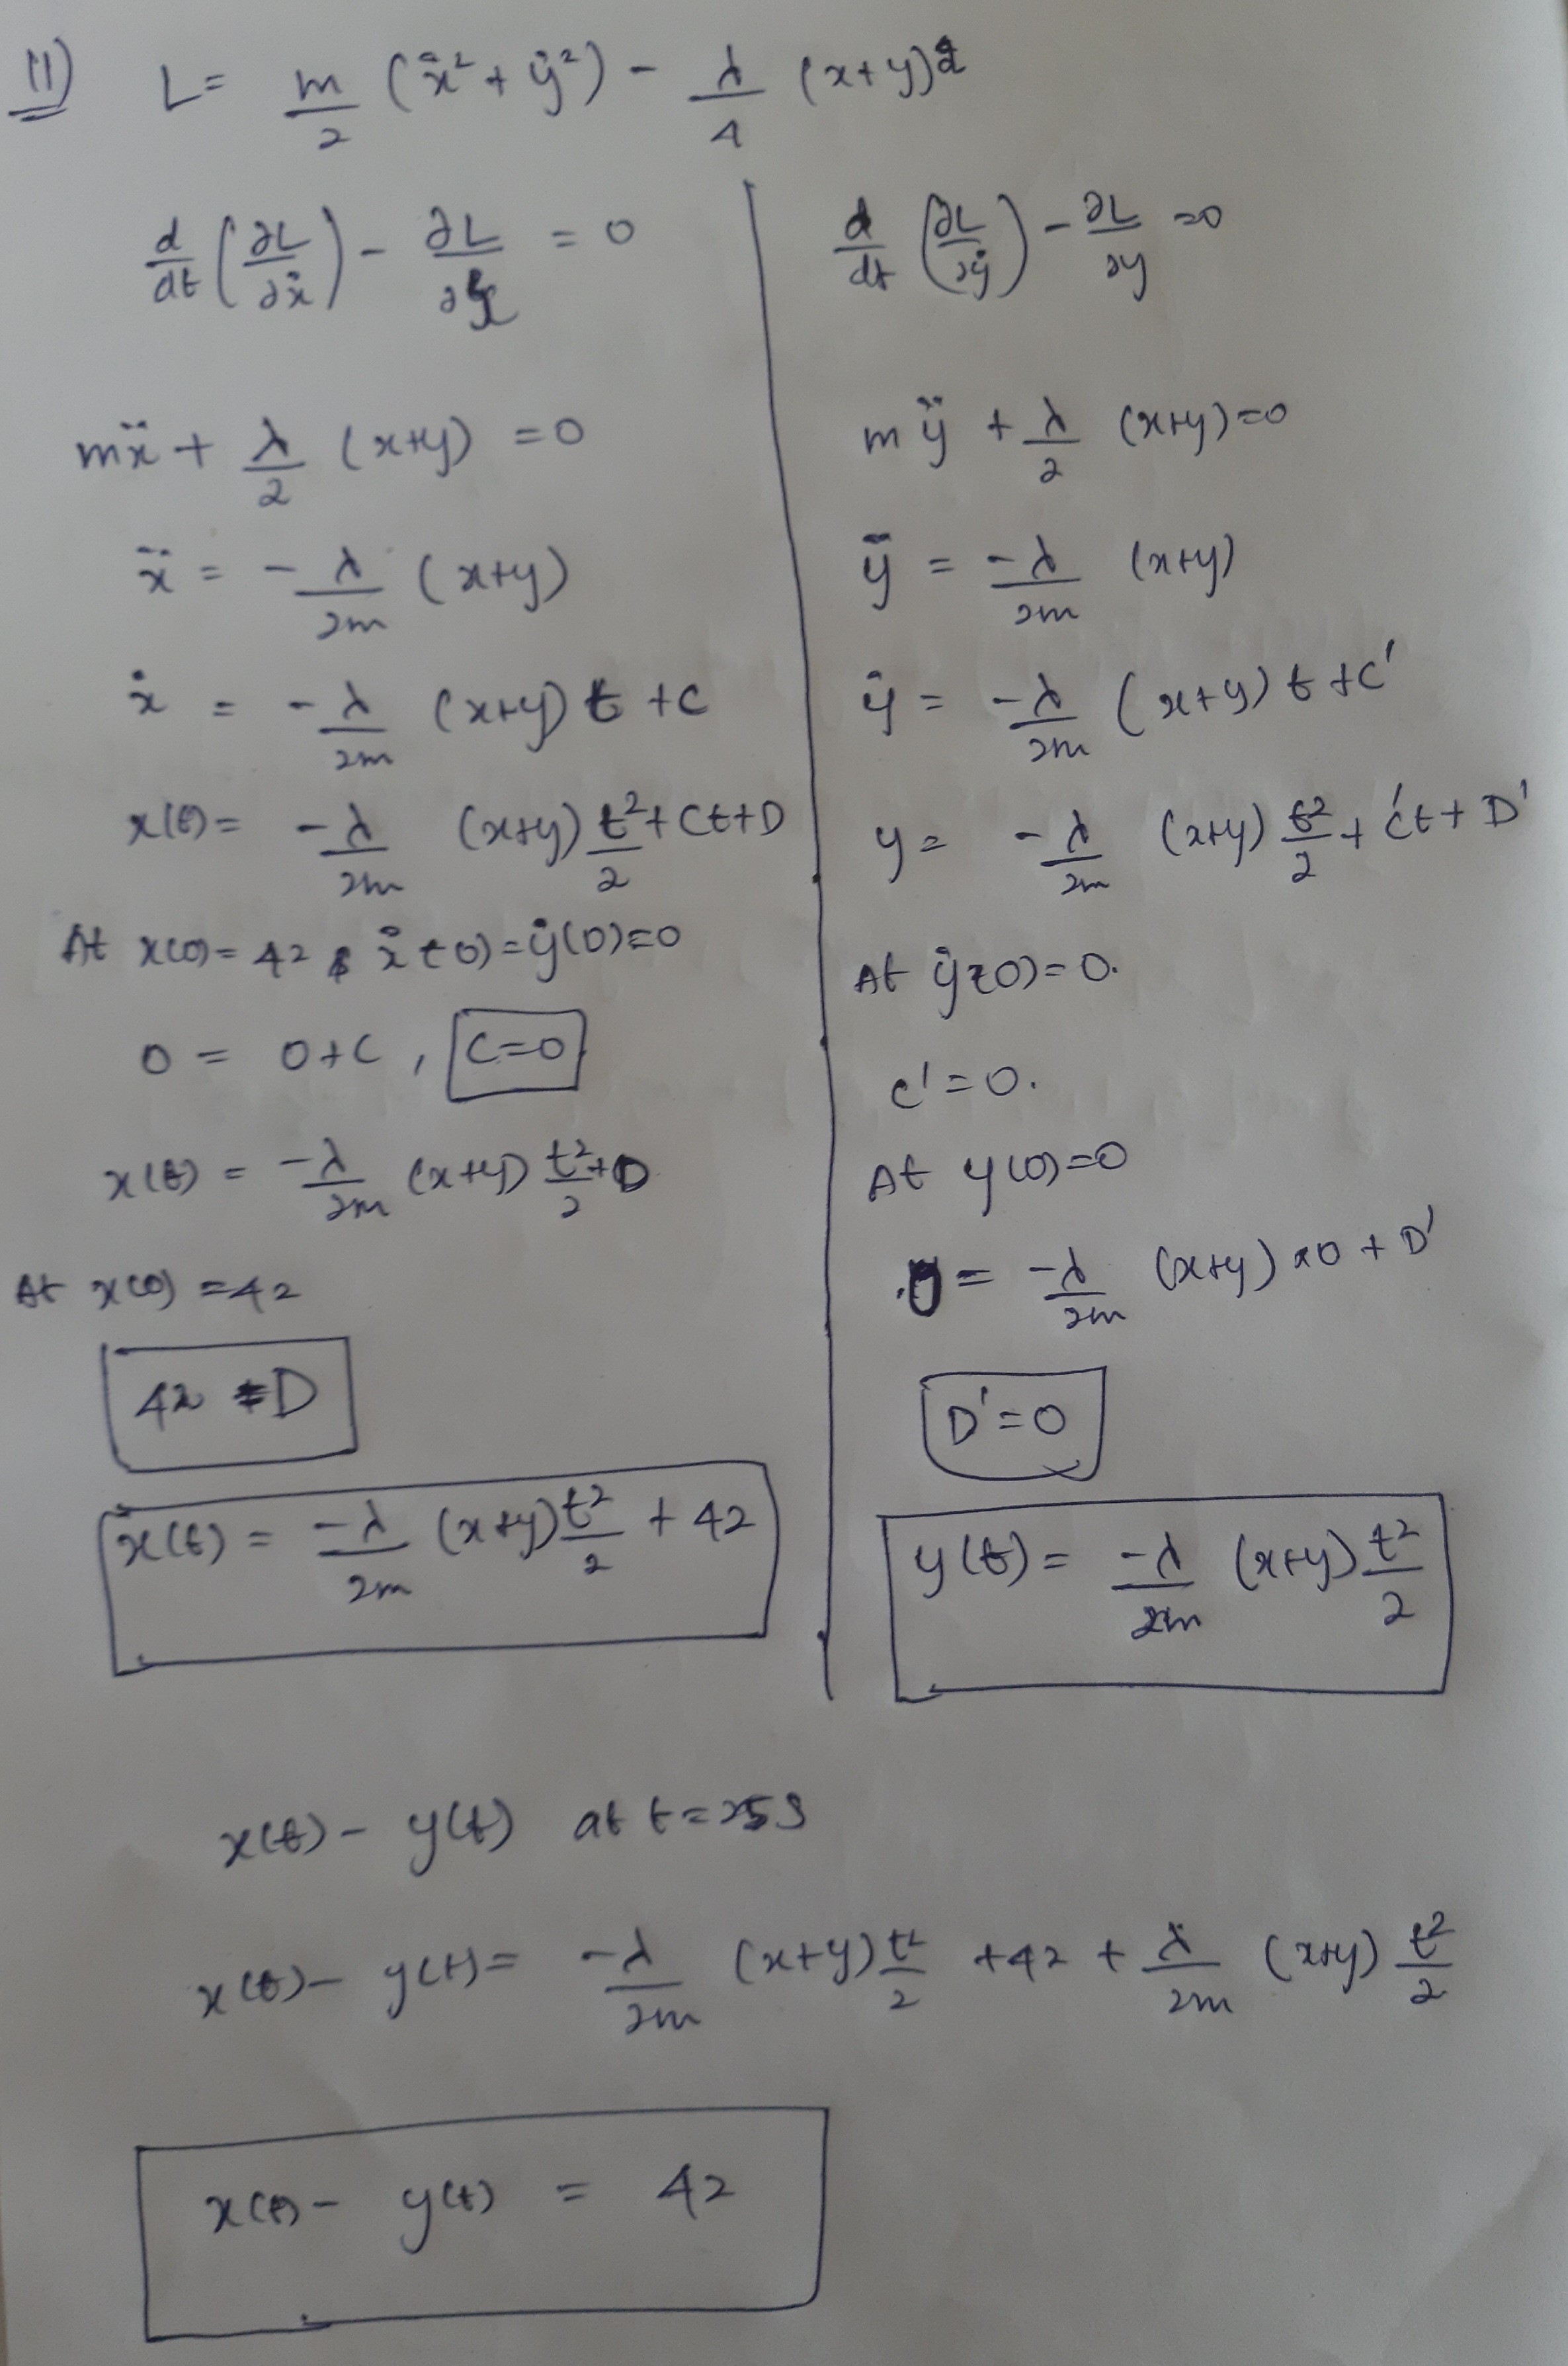 11) L = m/2 (ẋ² + ẏ²) - λ/4 (x+y)²
d/dt (∂L/∂ẋ) - ∂L/∂x = 0
mẍ + λ/2 (x+y) = 0
ẍ = -λ/2m (x+y)
ẋ = -λ/2m (x+y) t + C
x(t) = -λ/2m (x+y) t²/2 + Ct + D
At x(0) = 42 & ẋ(0) = ẏ(0) = 0
0 = 0 + C , C = 0
x(t) = -λ/2m (x+y) t²/2 + D
At x(0) = 42
42 = D
x(t) = -λ/2m (x+y) t²/2 + 42
d/dt (∂L/∂ẏ) - ∂L/∂y = 0
mÿ + λ/2 (x+y) = 0
ÿ = -λ/2m (x+y)
ẏ = -λ/2m (x+y) t + C'
y = -λ/2m (x+y) t²/2 + C't + D'
At ẏ(0) = 0.
C' = 0.
At y(0) = 0
0 = -λ/2m (x+y) x0 + D'
D' = 0
y(t) = -λ/2m (x+y) t²/2
x(t) - y(t) at t =
x(t) - y(t) = -λ/2m (x+y) t²/2 + 42 + λ/2m (x+y) t²/2
x(t) - y(t) = 42